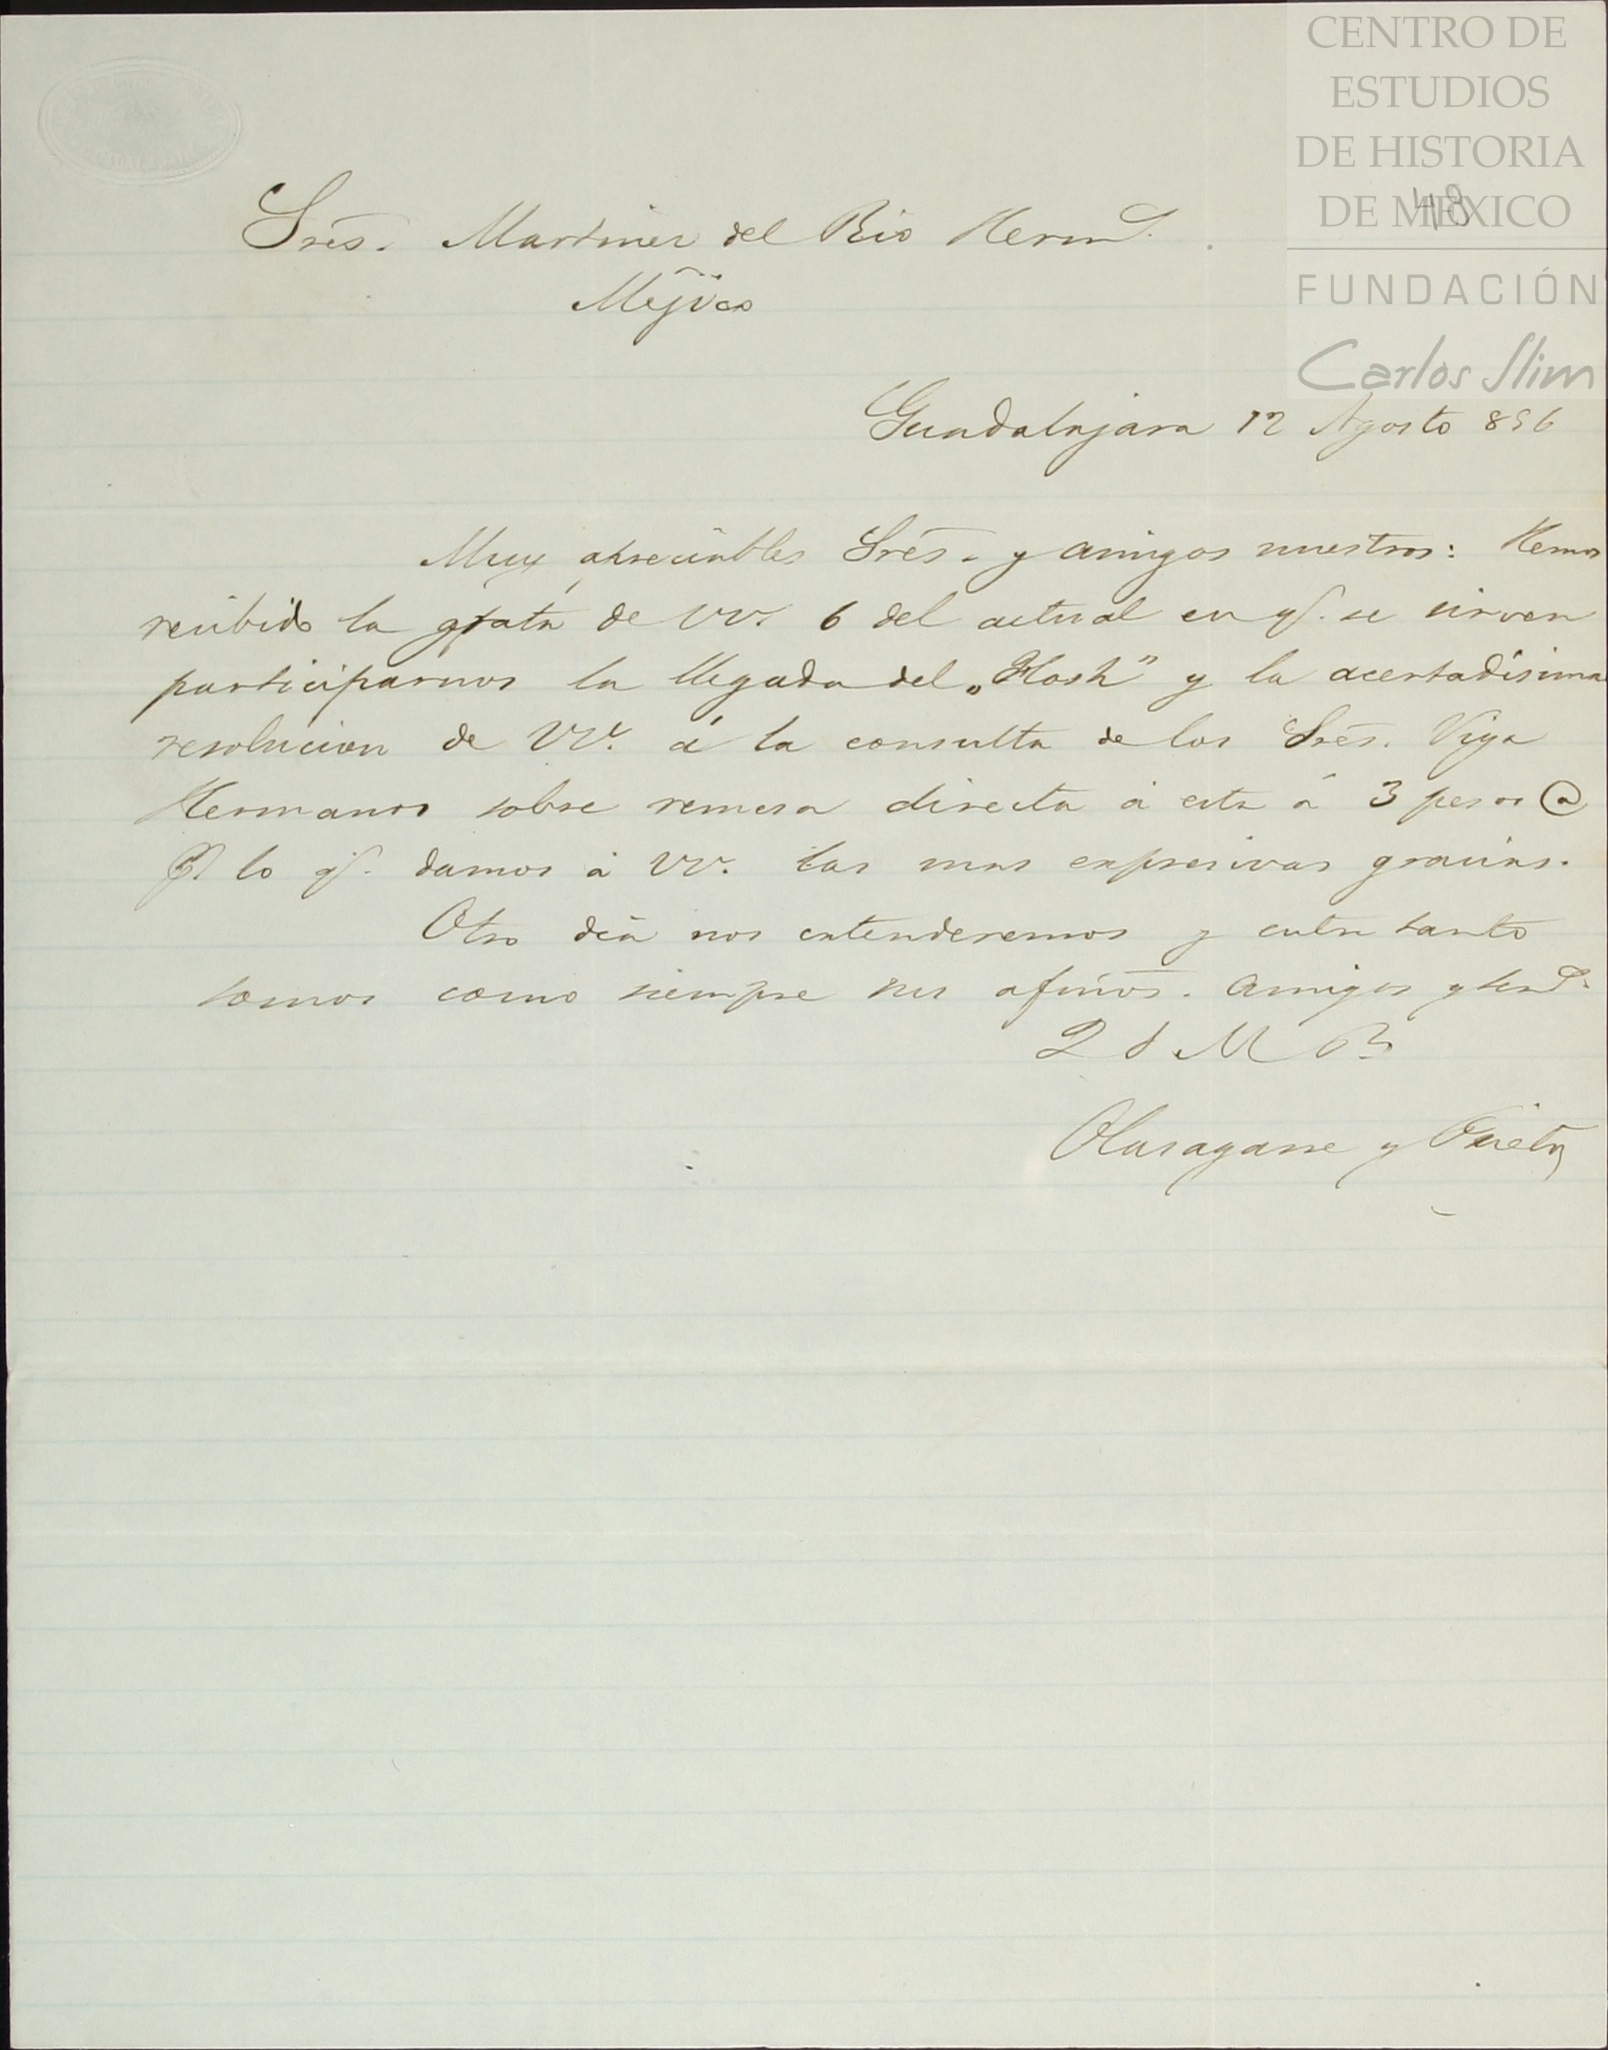 CENTRO DE
ESTUDIOS
DE HISTORIA
DE MÉXICO
48
FUNDACIÓN
Carlos Slim
Sres. Martinez del Rio Herms.
Mejico
Guadalajara 12 Agosto 856
Muy apreciables Sres. y amigos nuestros: Hemos
recibido la grata de VV. 6 del actual en q. se sirven
participarnos la llegada del „Hosh" y la acertadísima
resolucion de VV. á la consulta de los Sres. Viga
Hermanos sobre remesa directa á esta á 3 pesos @
P. lo q. damos á VV. las mas expresivas gracias.
Otro dia nos entenderemos y entre tanto
somos como siempre sus afmos. amigos y ser.
Q S M B
Olasagarre y Prieto